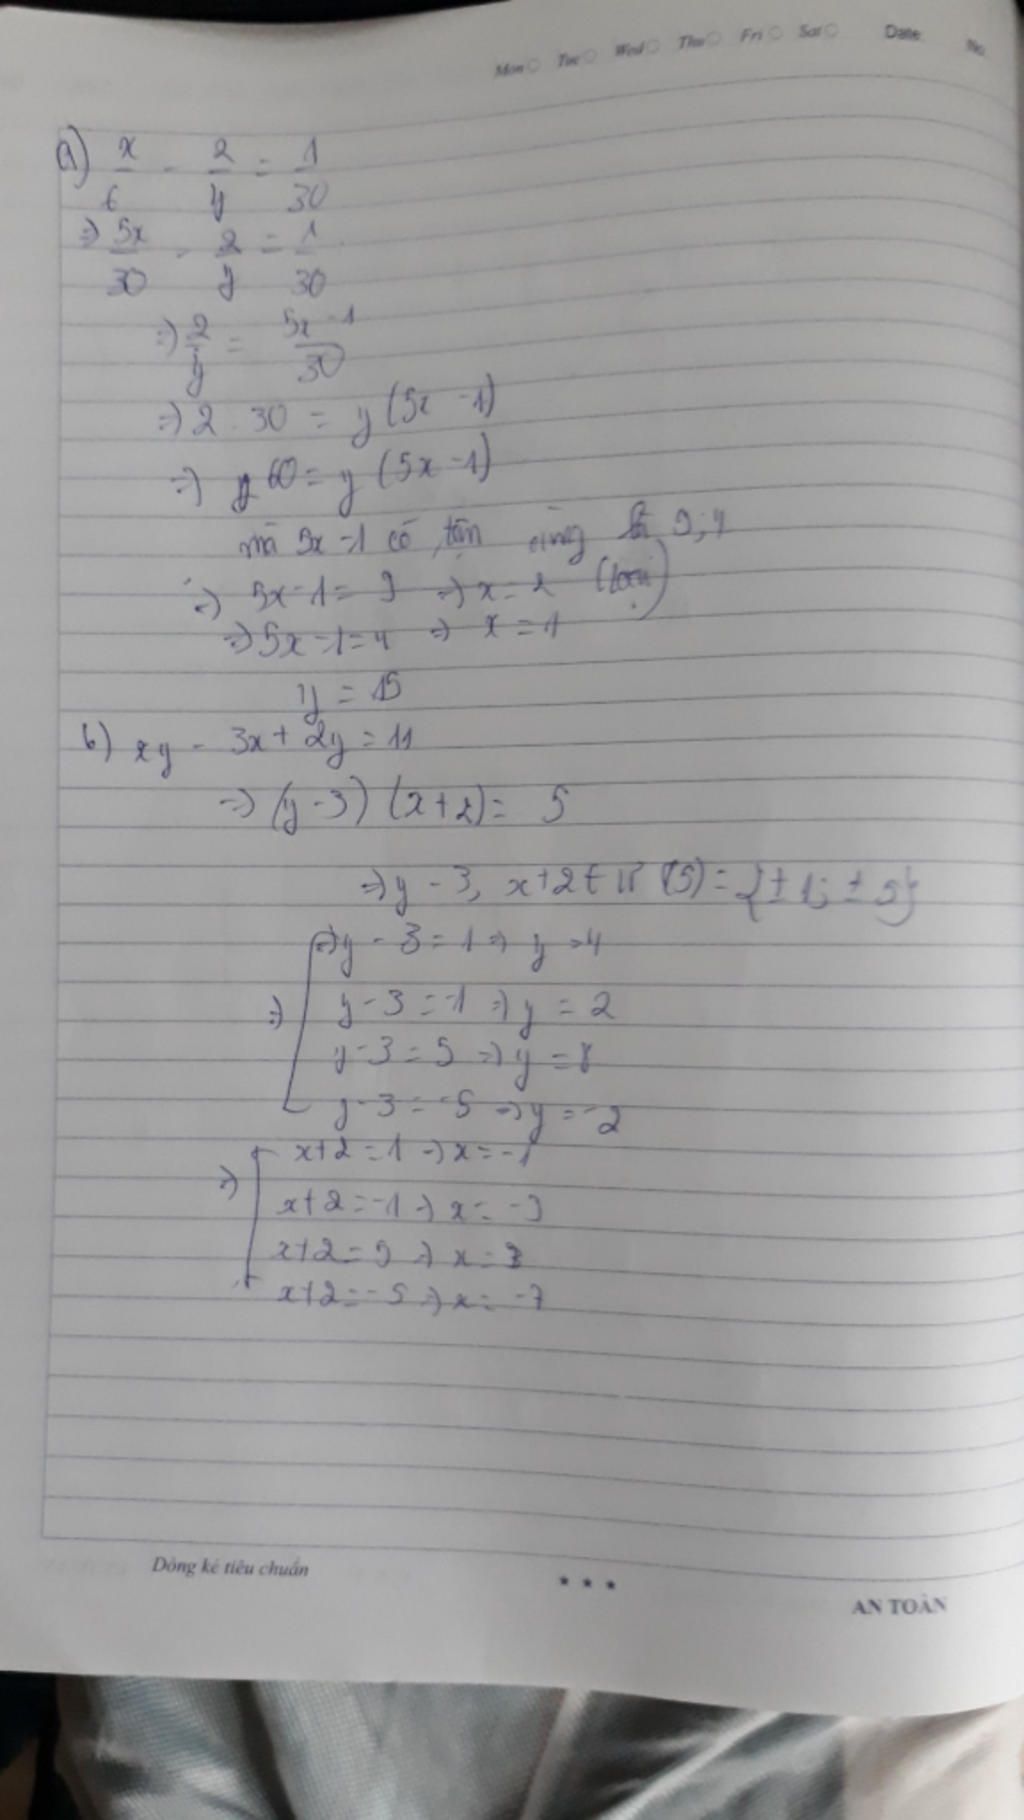 Mon Tue Wed Thu Fri Sat Date No
a) x/6 - 2/y = 1/30
=) 5x/30 - 2/y = 1/30
=) 2/y = 5x - 1/30
=) 2 . 30 = y (5x - 1)
=) 60 = y (5x - 1)
mà 5x - 1 có tận cùng là 9; 4
=) 5x - 1 = 9 =) x = 2 (loại)
=) 5x - 1 = 4 =) x = 1
y = 15
b) xy - 3x + 2y = 11
=) (y - 3) (x + 2) = 5
=) y - 3, x + 2 ∈ Ư (5) = {± 1; ± 5}
=) y - 3 = 1 =) y = 4
=) y - 3 = -1 =) y = 2
y - 3 = 5 =) y = 8
y - 3 = -5 =) y = -2
x + 2 = 1 =) x = -1
=) x + 2 = -1 =) x = -3
x + 2 = 5 =) x = 3
x + 2 = -5 =) x = -7
Dòng kẻ tiêu chuẩn
* * *
AN TOÀN